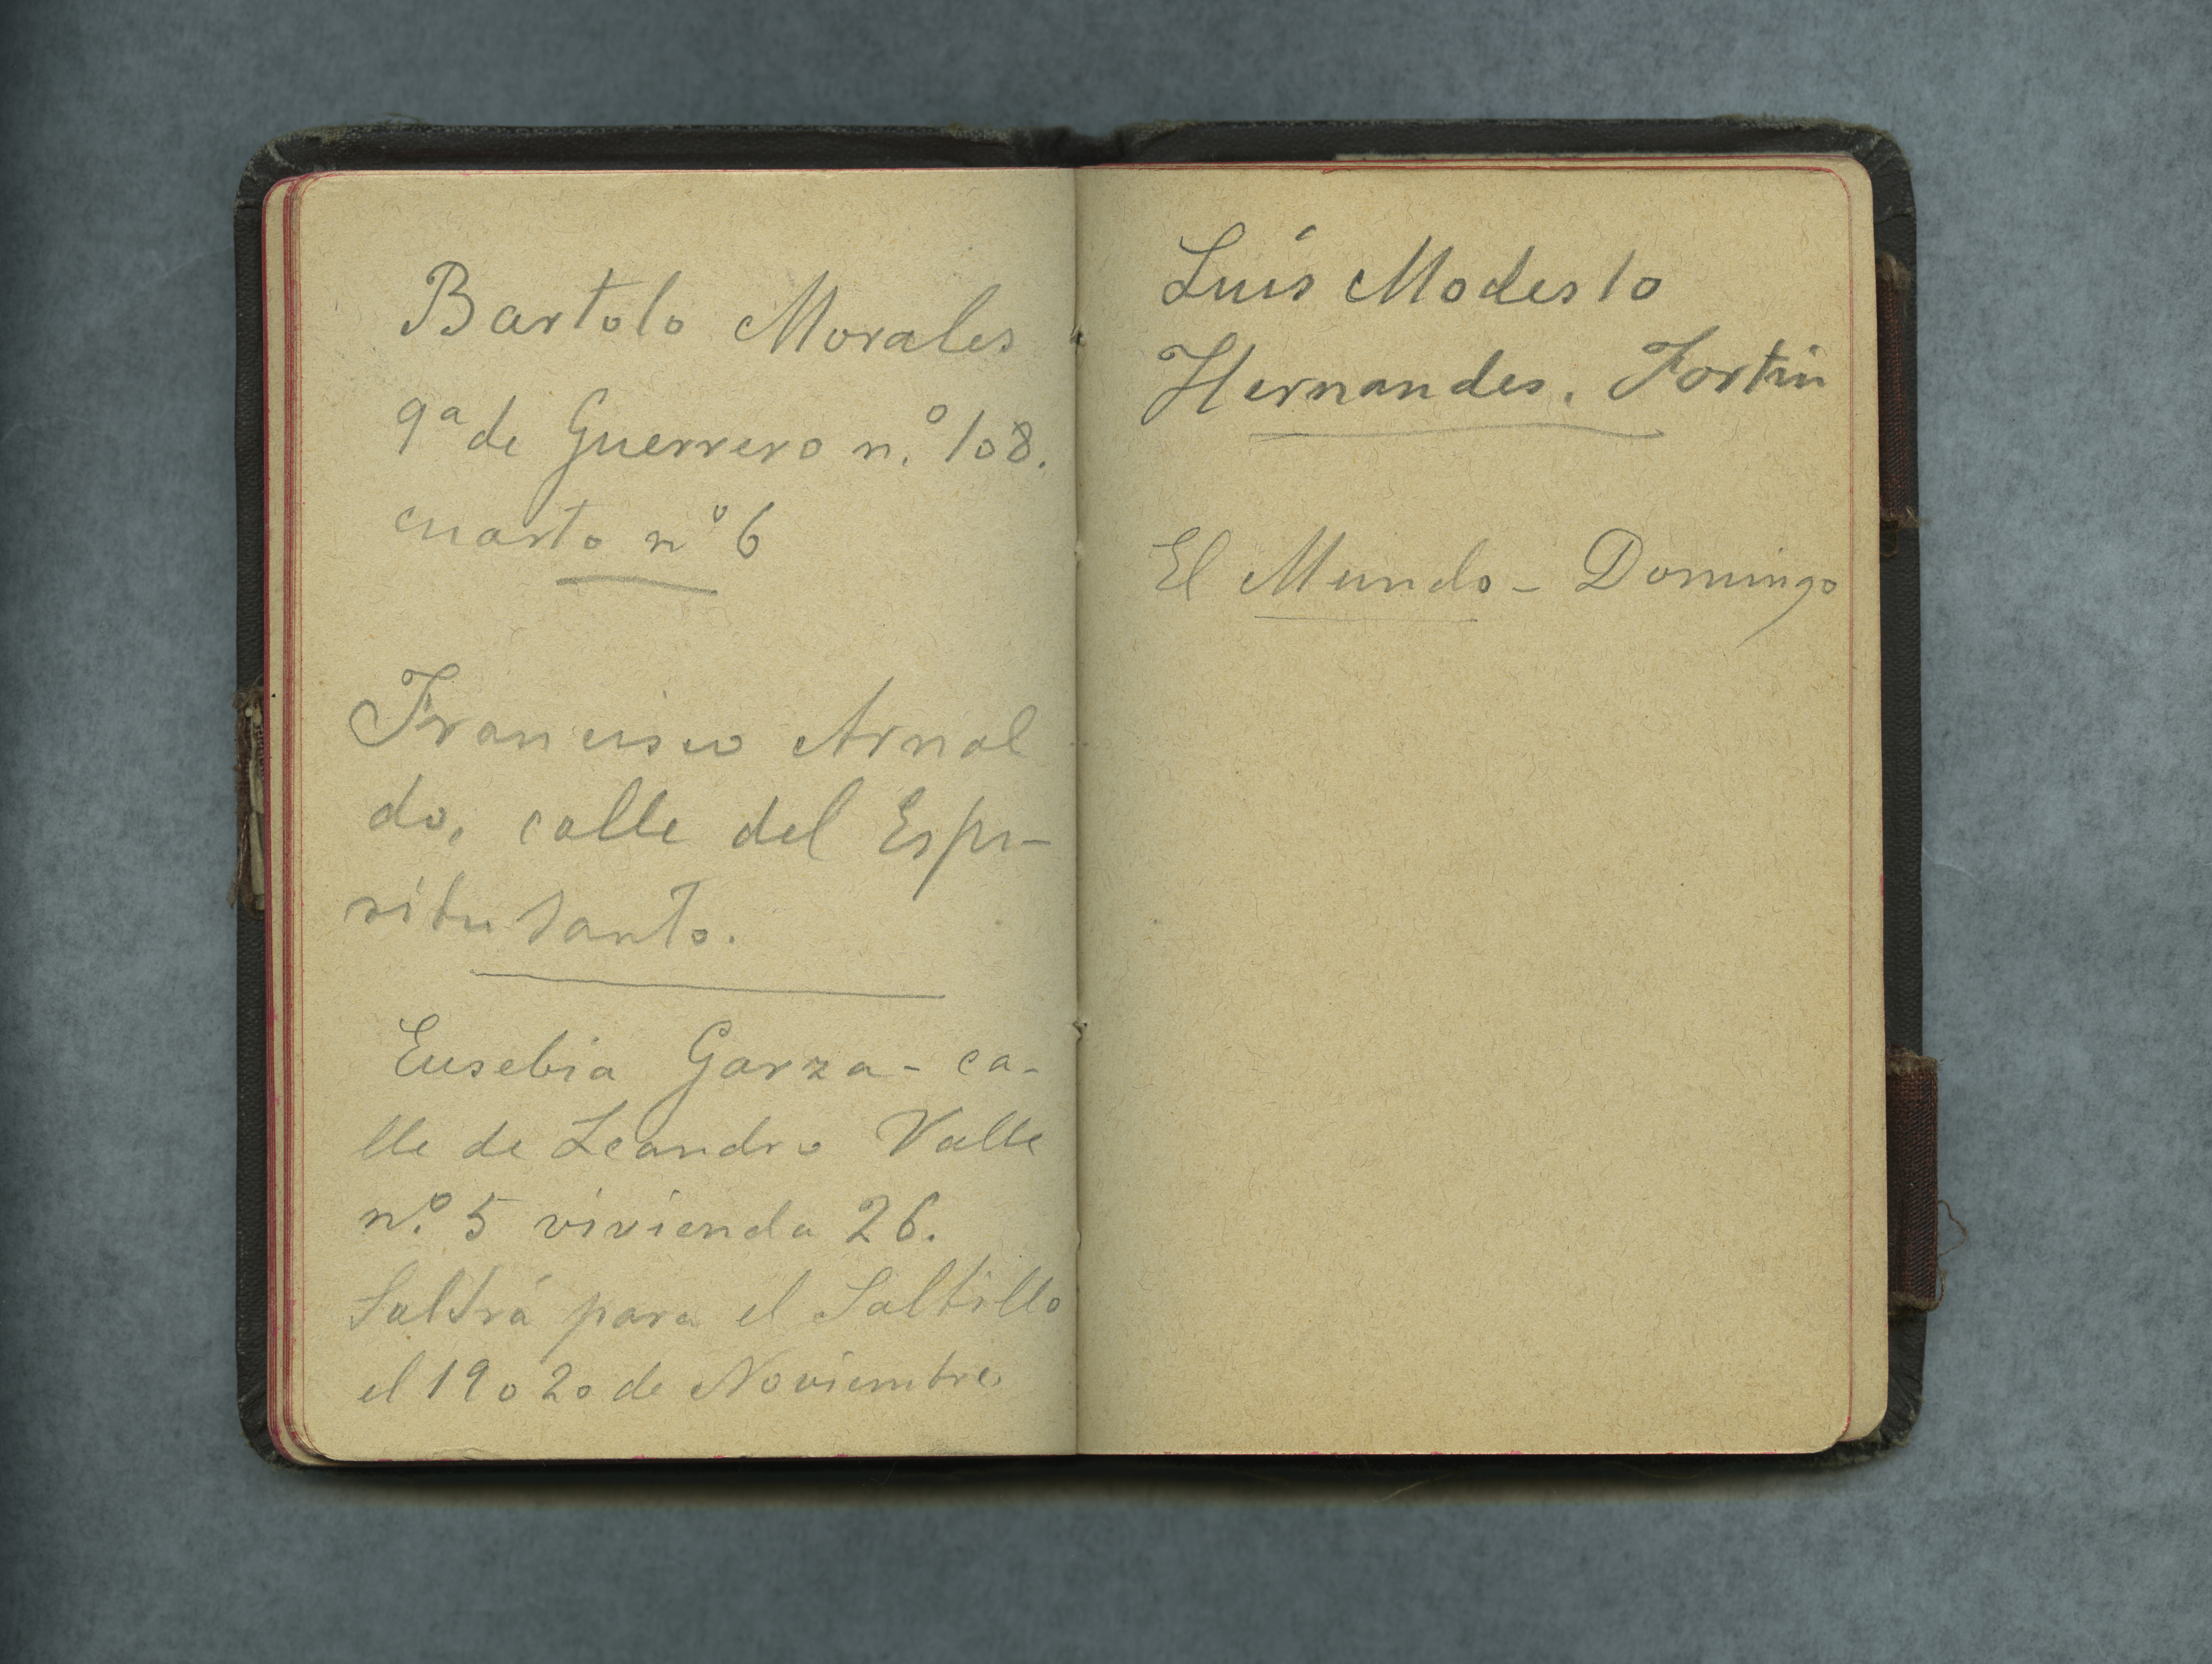 Bartolo Morales
9ª de Guerrero n.º 108.
cuarto nº 6
Francisco Arnal
do, calle del Espi-
ritu Santo.
Eusebia Garza - ca-
lle de Leandro Valle
n.º 5 vivienda 26.
Saldrá para el Saltillo
el 19 o 20 de Noviembre
Luís Modesto
Hernandes. Fortin
El Mundo - Domingo